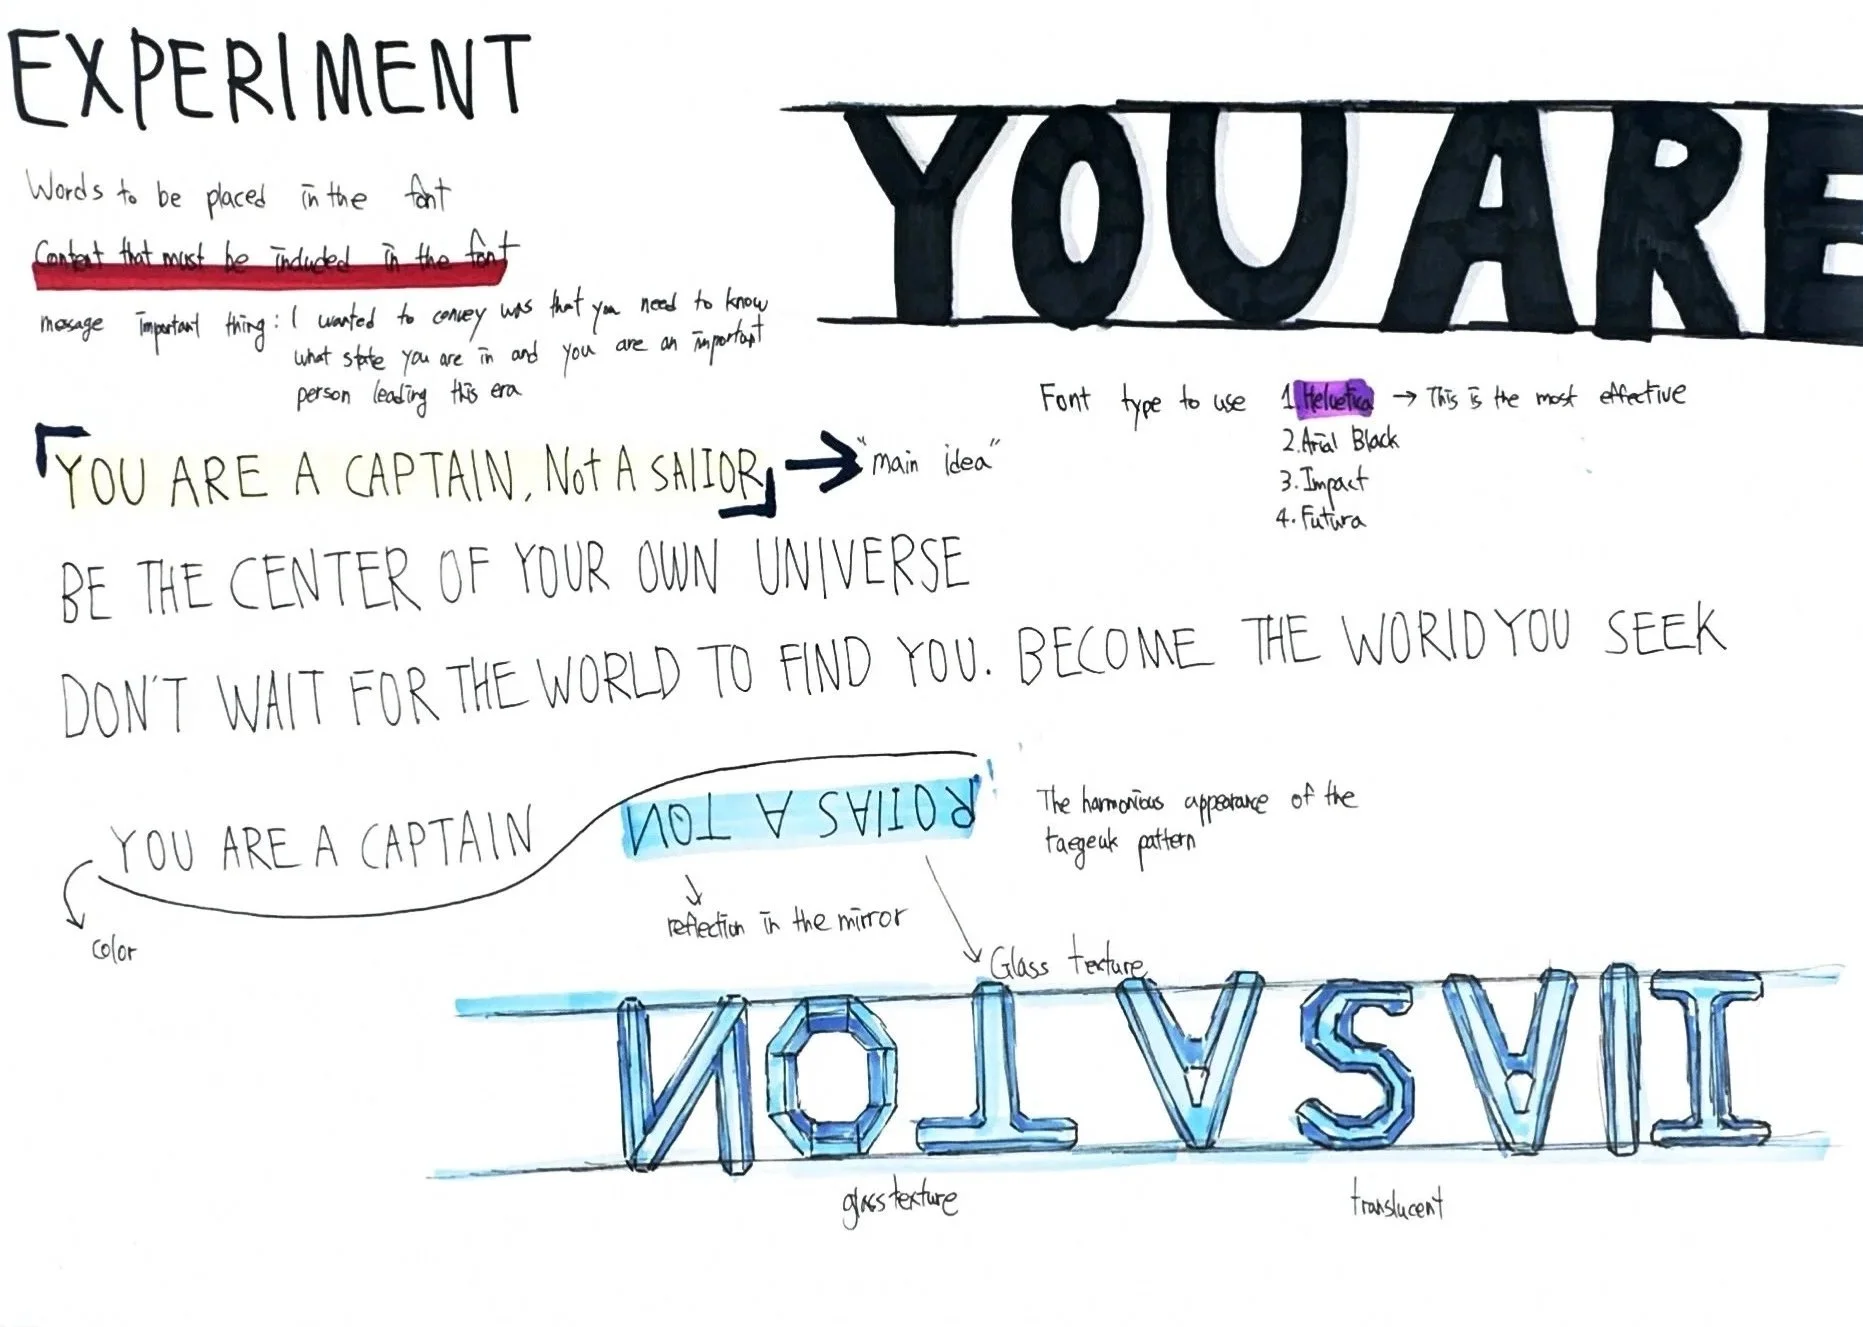 EXPERIMENT
Words to be placed in the font
Content that must be included in the font
mesage important thing: I wanted to convey was that you need to know
what state you are in and you are an important
person leading this era
YOU ARE
Font type to use 1. Helvetica → This is the most effective
2. Arial Black
3. Impact
4. Futura
「YOU ARE A CAPTAIN, Not A SAIIOR」 → "main idea"
BE THE CENTER OF YOUR OWN UNIVERSE
DON'T WAIT FOR THE WORLD TO FIND YOU. BECOME THE WORID YOU SEEK
YOU ARE A CAPTAIN
NOT A SAIIOR
The harmonious appearance of the
taegeuk pattern
color
reflection in the mirror
Glass texture
NOT A SAII
glass texture
translucent